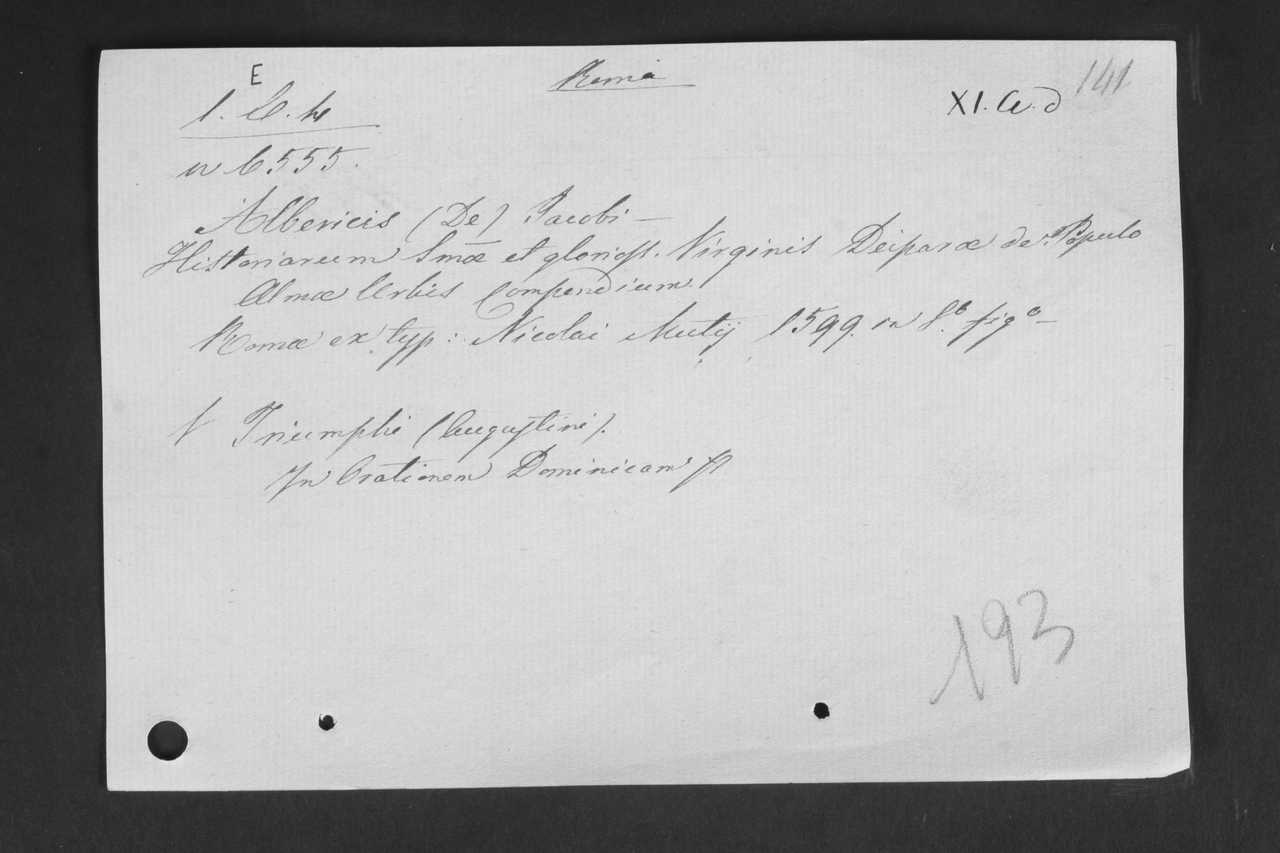 E
Roma
141
1. C. 4
XI. a. d
n 6555.
Albericis (De) Jacobi —
Historiarum Smæ et glorioss. Virginis Deiparæ de Populo
Almæ Urbis Compendium
Romæ ex typ: Nicolai Mutij 1599. in 8.º figº —
Triumphi (Augustini).
In Orationem Dominicam
193